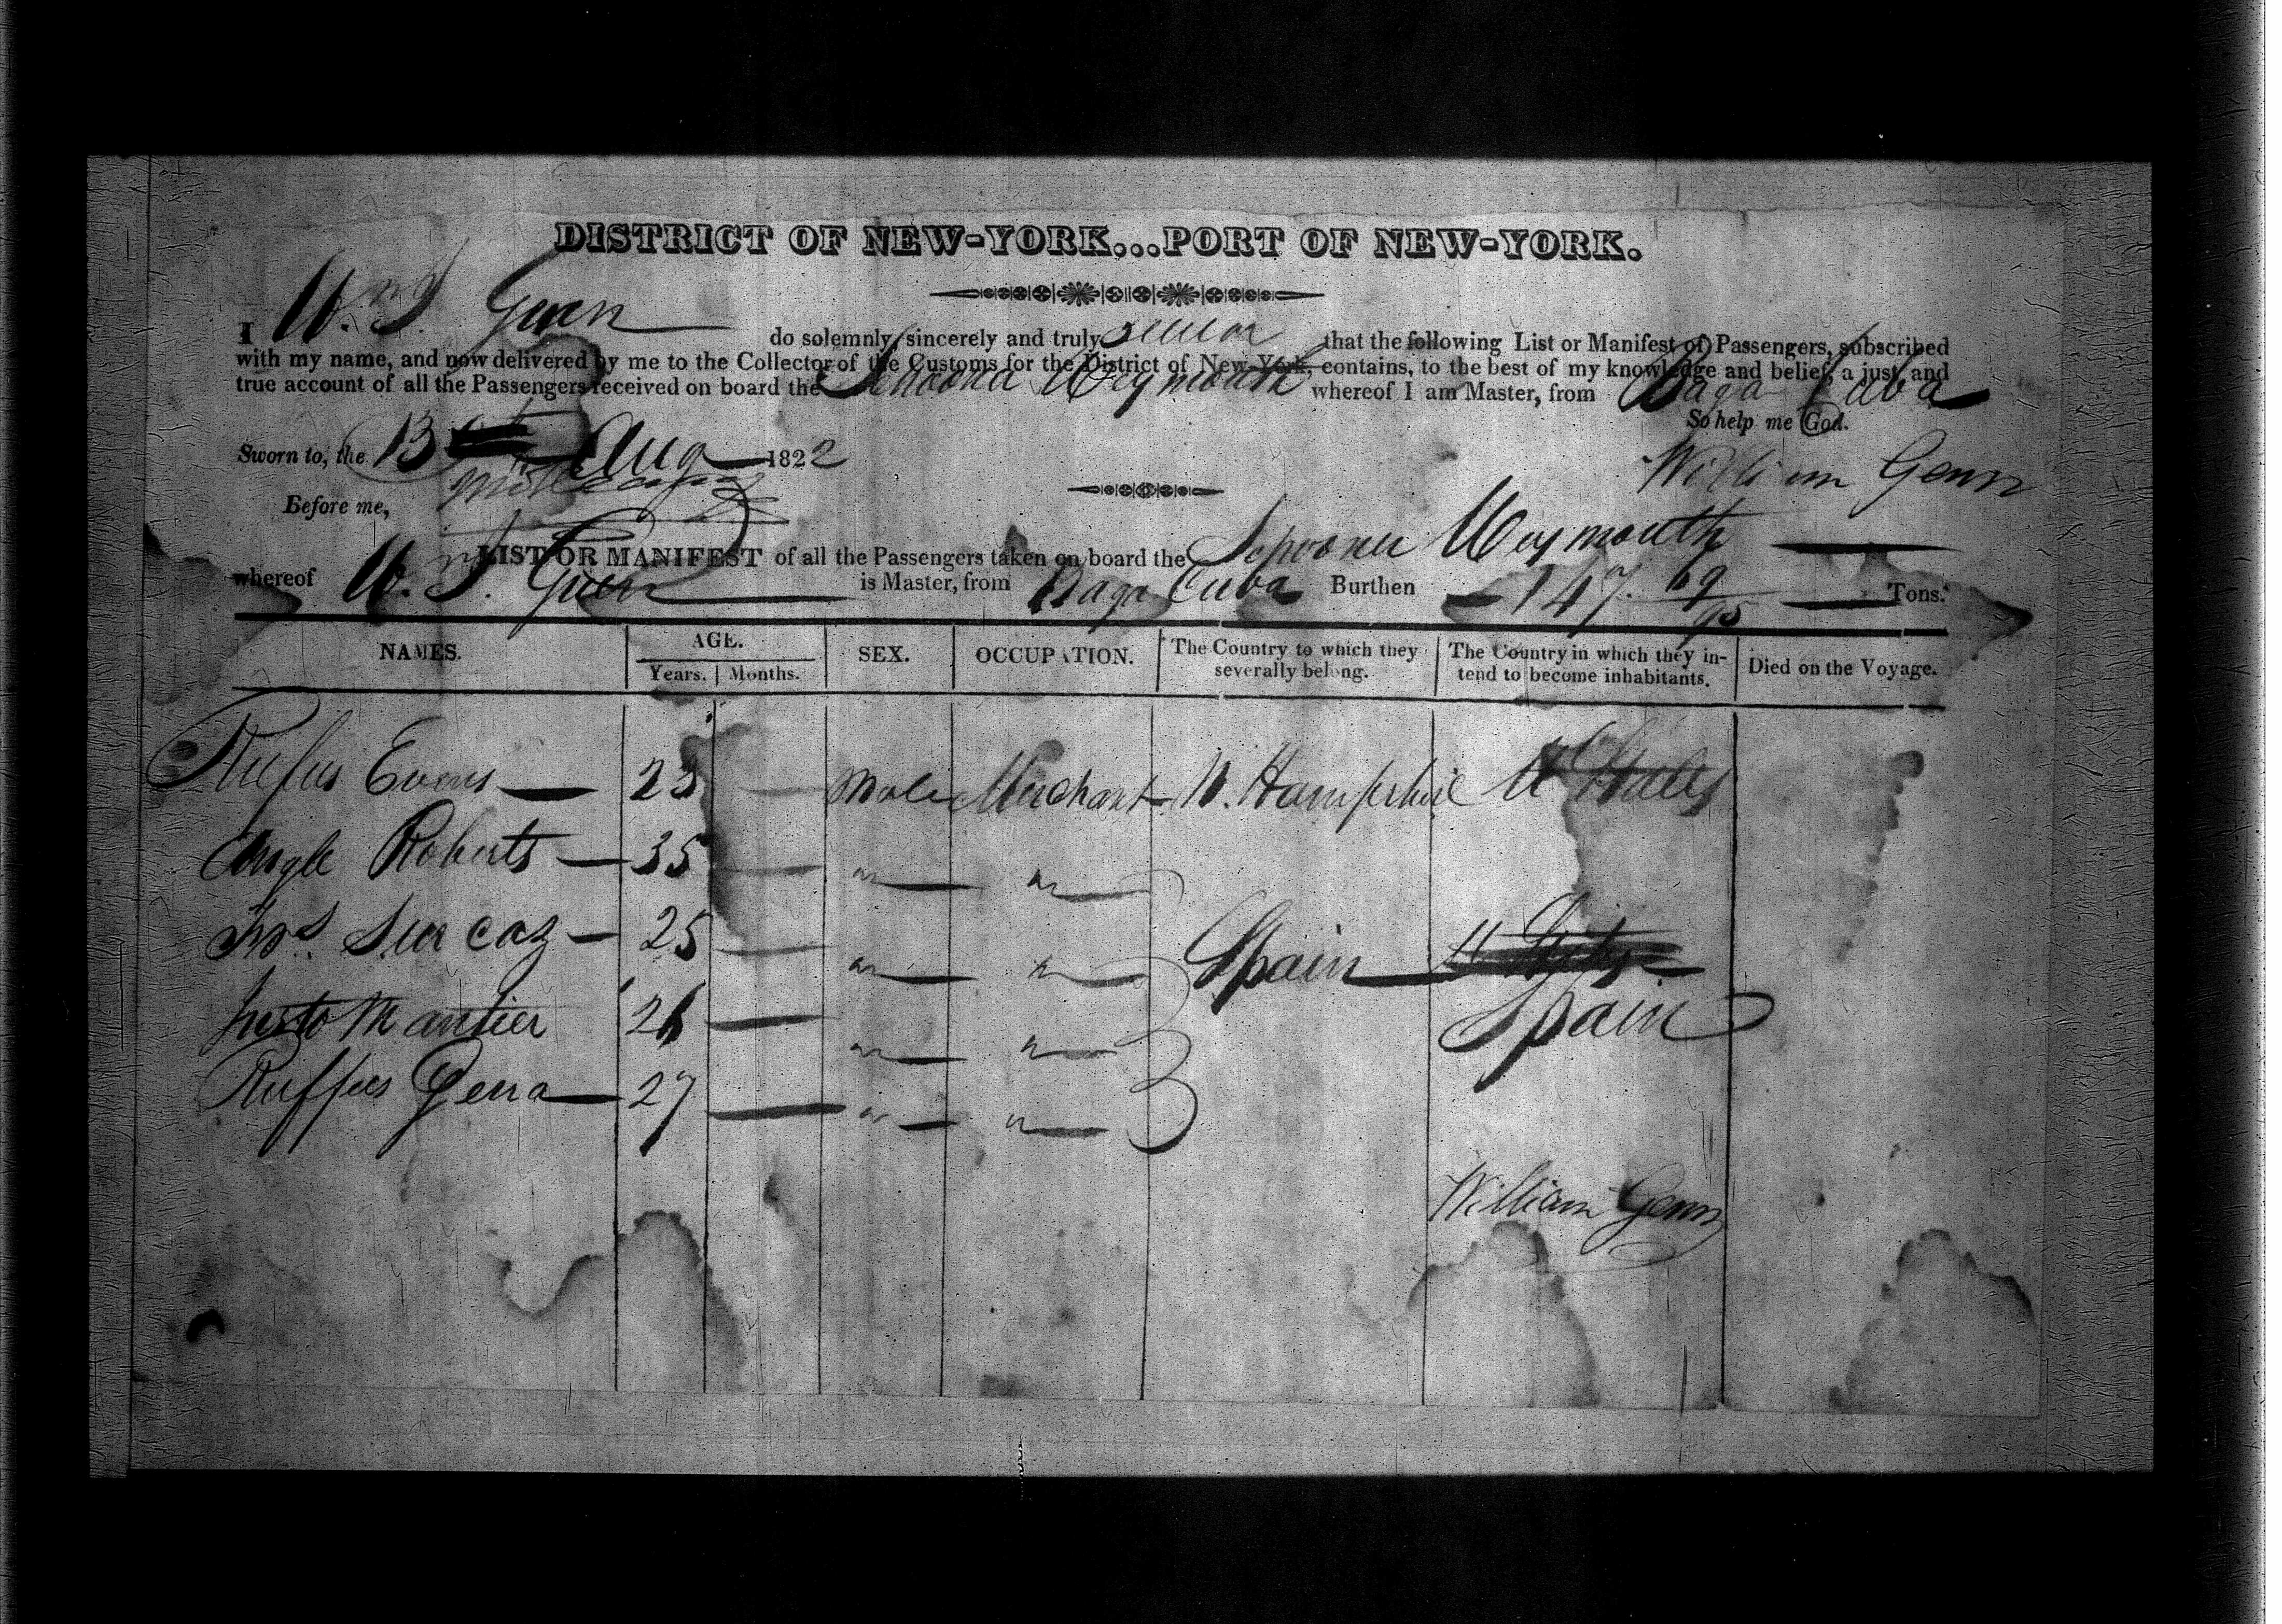 DISTRICT OF NEW-YORK...PORT OF NEW-YORK.
I Wm Genn do solemnly, sincerely and truly swear that the following List or Manifest of Passengers, subscribed
with my name, and now delivered by me to the Collector of the Customs for the District of New-York, contains, to the best of my knowledge and belief, a just and
true account of all the Passengers received on board the Schooner Weymouth whereof I am Master, from Cuba
So help me God.
Sworn to, the 13 Aug 1822
William Genn
Before me,
LIST OR MANIFEST of all the Passengers taken on board the Schooner Weymouth
whereof Wm Genn is Master, from Cuba Burthen 147. 69/95 Tons.
NAMES. AGE. SEX. OCCUPATION. The Country to which they severally belong. The Country in which they intend to become inhabitants. Died on the Voyage.
Years. Months.
Rufus Evens 23 Male Merchant N. Hampshire U States
Angle Roberts 35 " "
25 " "
Spain
Justo Mantier 26 " " Spain
Ruffus 27 " "
William Genn